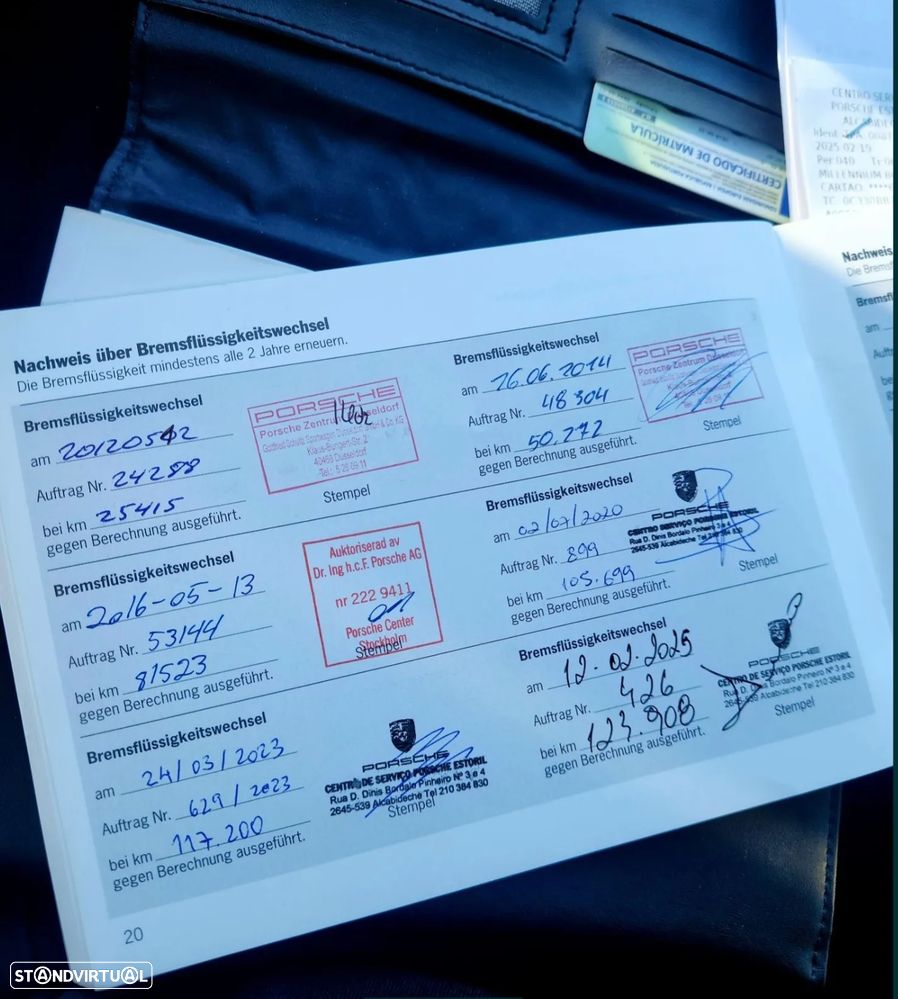 CERTIFICADO DE MATRÍCULA
CENTRO SER
PORSCHE ES
2025-02-19
Per:040
MILLENNIUM
CARTAO: ****
Nachweis über Bremsflüssigkeitswechsel
Die Bremsflüssigkeit mindestens alle 2 Jahre erneuern.
Bremsflüssigkeitswechsel
am 20120512
Auftrag Nr. 24288
bei km 25415
gegen Berechnung ausgeführt.
PORSCHE
Porsche Zentrum Düsseldorf
Klaus-Bungert-Str. 2
40468 Düsseldorf
Stempel
Bremsflüssigkeitswechsel
am 26.06.2014
Auftrag Nr. 48304
bei km 50.272
gegen Berechnung ausgeführt.
PORSCHE
Porsche Zentrum Düsseldorf
Stempel
Bremsflüssigkeitswechsel
am 2016-05-13
Auftrag Nr. 53144
bei km 81523
gegen Berechnung ausgeführt.
Auktoriserad av
Dr. Ing h.c.F. Porsche AG
nr 222 9411
Porsche Center
Stockholm
Stempel
Bremsflüssigkeitswechsel
am 02/07/2020
Auftrag Nr. 899
bei km 105.699
gegen Berechnung ausgeführt.
PORSCHE
CENTRO SERVIÇO PORSCHE ESTORIL
R. D. Dinis Bordalo Pinheiro 3 e 4
2645-539 Alcabideche Tel 210 384 830
Stempel
Bremsflüssigkeitswechsel
am 24/03/2023
Auftrag Nr. 629/2023
bei km 117.200
gegen Berechnung ausgeführt.
PORSCHE
CENTRO DE SERVIÇO PORSCHE ESTORIL
Rua D. Dinis Bordalo Pinheiro Nº 3 e 4
2645-539 Alcabideche Tel 210 384 830
Stempel
Bremsflüssigkeitswechsel
am 12.02.2025
Auftrag Nr. 426
bei km 123.908
gegen Berechnung ausgeführt.
PORSCHE
CENTRO DE SERVIÇO PORSCHE ESTORIL
Rua D. Dinis Bordalo Pinheiro Nº 3 e 4
2645-539 Alcabideche Tel 210 384 830
Stempel
20
Nachweis
Die Bremsf
Bremsfl
am
STANDVIRTUAL